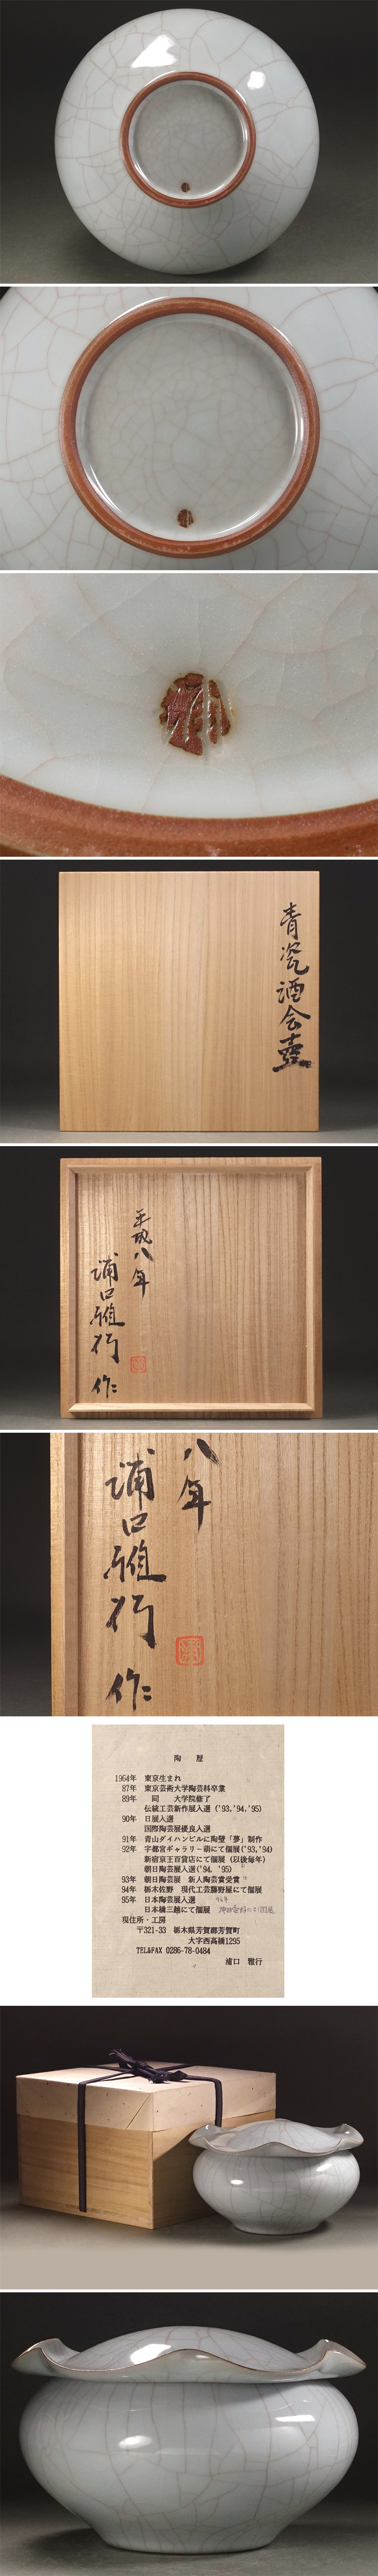 青瓷酒会壺
平成八年
浦口雅行 作
八年
浦口雅行 作
陶 歴
1964年 東京生まれ
87年 東京芸術大学陶芸科卒業
89年 同 大学院修了
伝統工芸新作展入選('93,'94,'95)
90年 日展入選
国際陶芸展優良入選
91年 青山ダイハンビルに陶璧「夢」制作
92年 宇都宮ギャラリー萌にて個展('93,'94)
新宿京王百貨店にて個展(以後毎年)
朝日陶芸展入選('94, '95)
93年 朝日陶芸展 新人陶芸賞受賞
94年 栃木佐野 現代工芸藤野屋にて個展
95年 日本陶芸展入選
日本橋三越にて個展
現住所・工房
〒321-33 栃木県芳賀郡芳賀町
大字西高橋1295
TEL&FAX 0286-78-0484
浦口 雅行